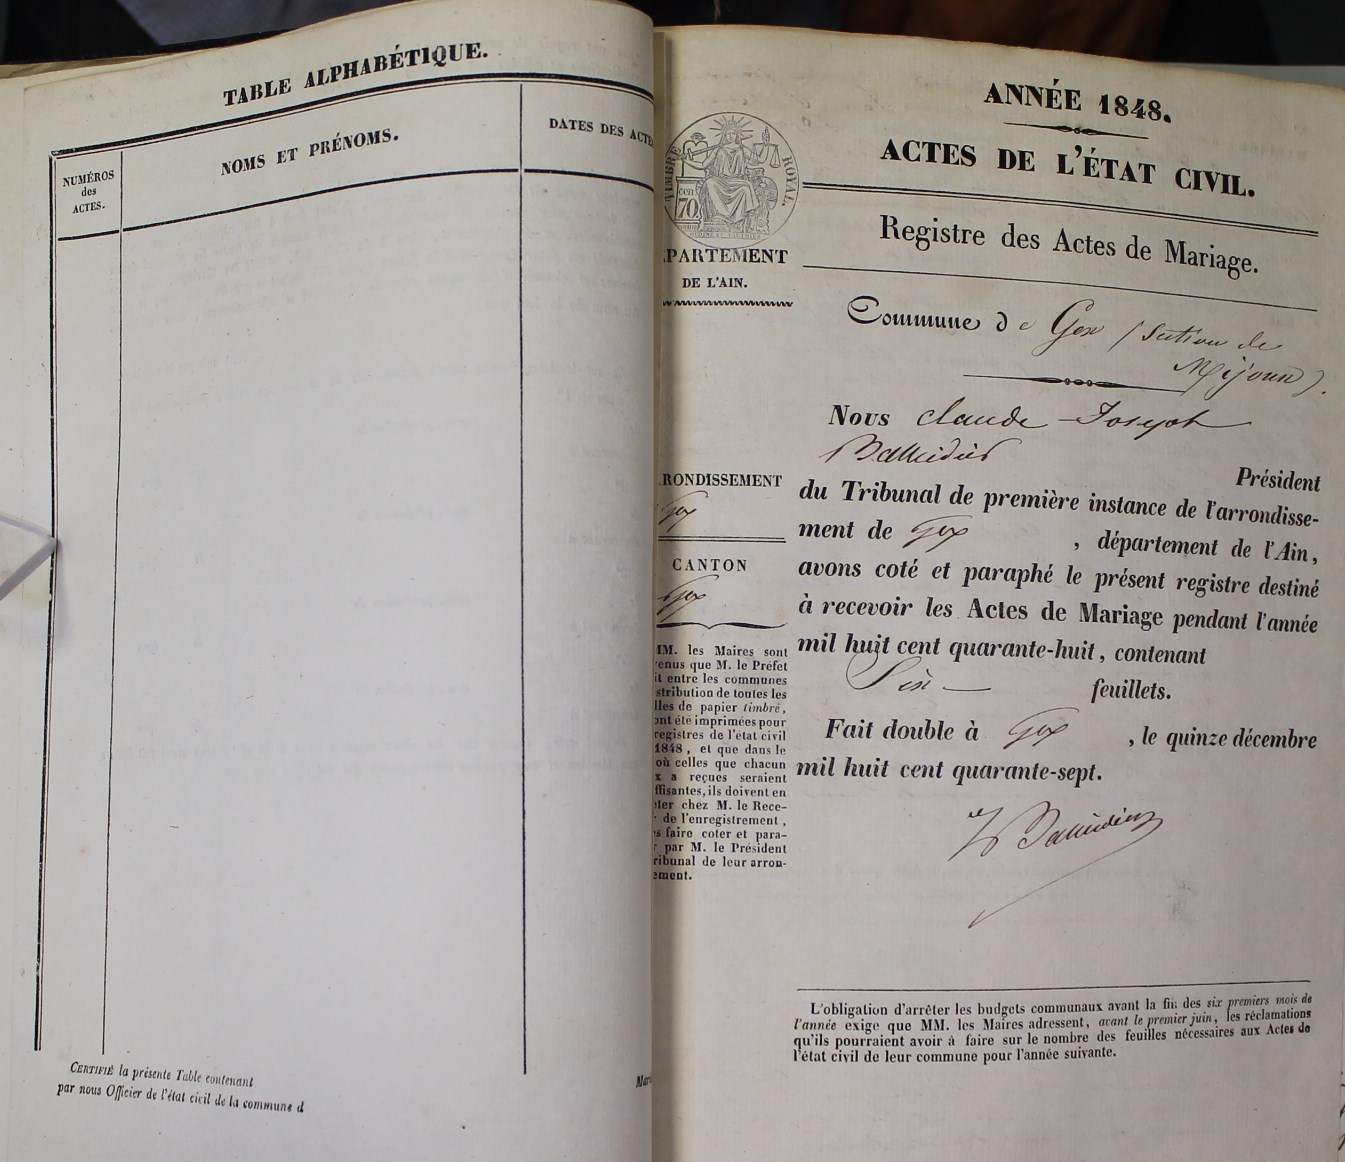 TABLE ALPHABÉTIQUE.
NUMÉROS
des
ACTES.
NOMS ET PRÉNOMS.
DATES DES ACTE
CERTIFIÉ la présente Table contenant
par nous Officier de l'état civil de la commune d
Mari
TIMBRE ROYAL.
cen
70
PARTEMENT
DE L'AIN.
RONDISSEMENT
Gex
CANTON
Gex
MM. les Maires sont
enus que M. le Préfet
it entre les communes
stribution de toutes les
lles de papier timbré,
ont été imprimées pour
registres de l'état civil
1848, et que dans le
où celles que chacun
x a reçues seraient
ffisantes, ils doivent en
ter chez M. le Rece-
r de l'enregistrement,
s faire coter et para-
r par M. le Président
ribunal de leur arron-
ement.
ANNÉE 1848.
ACTES DE L'ÉTAT CIVIL.
Registre des Actes de Mariage.
Commune de Gex (section de
Mijoux).
Nous Claude-Joseph
Balleidier
Président
du Tribunal de première instance de l'arrondisse-
ment de Gex, département de l'Ain,
avons coté et paraphé le présent registre destiné
à recevoir les Actes de Mariage pendant l'année
mil huit cent quarante-huit, contenant
Six feuillets.
Fait double à Gex, le quinze décembre
mil huit cent quarante-sept.
Balleidier
L'obligation d'arrêter les budgets communaux avant la fin des six premiers mois de
l'année exige que MM. les Maires adressent, avant le premier juin, les réclamations
qu'ils pourraient avoir à faire sur le nombre des feuilles nécessaires aux Actes de
l'état civil de leur commune pour l'année suivante.